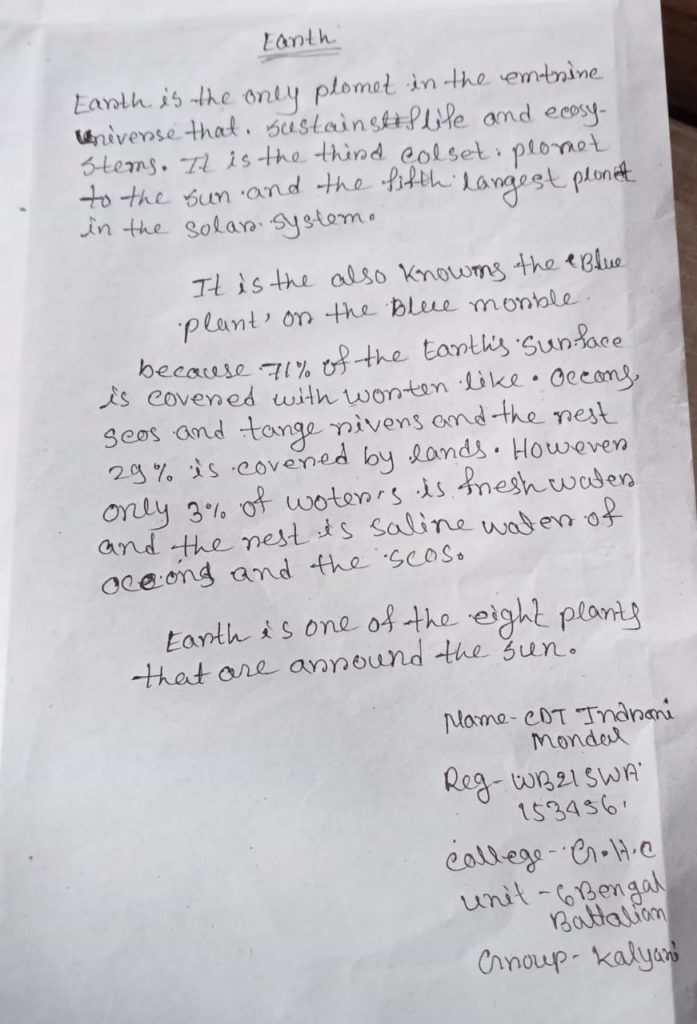 Earth
Earth is the only plomet in the emtnine
universe that. sustains life and ecosy-
stems. It is the third colset. plomet
to the sun and the fifth largest planet
in the solar system.
It is the also knowms the "Blue
plant' or the Blue monble.
because 71% of the Earth's surface
is covered with wonten like. Occans,
seos and tange rivers and the rest
29% is covered by lands. However
only 3% of woters is fresh water
and the rest is saline water of
oceong and the seos.
Earth is one of the eight plants
that are arround the sun.
Name- CDT Indrani
Mondal
Reg- WB21SWA
153456
College- G.H.C
unit - 6 Bengal
Battalian
Group- Kalyani